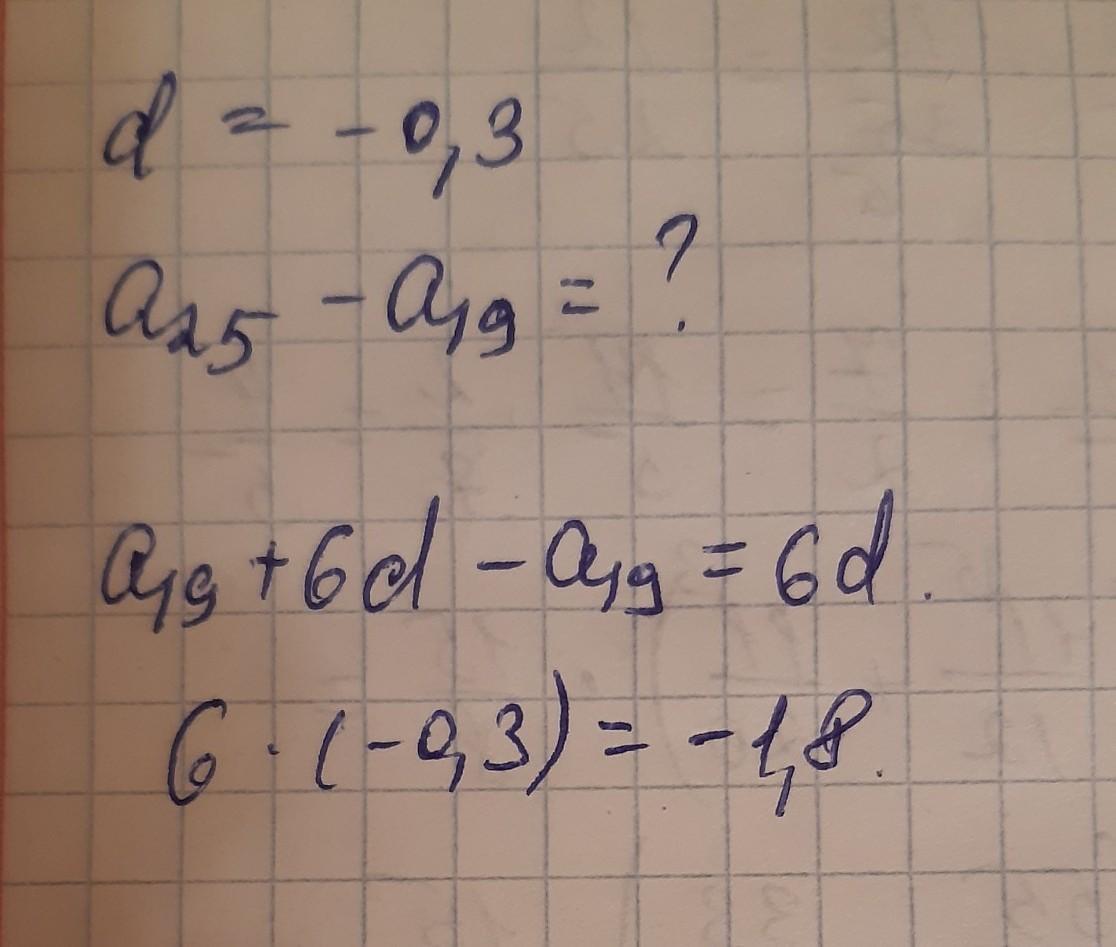 d = -0,3
a₂₅ - a₁₉ = ?
a₁₉ + 6d - a₁₉ = 6d.
6 · (-0,3) = -1,8.